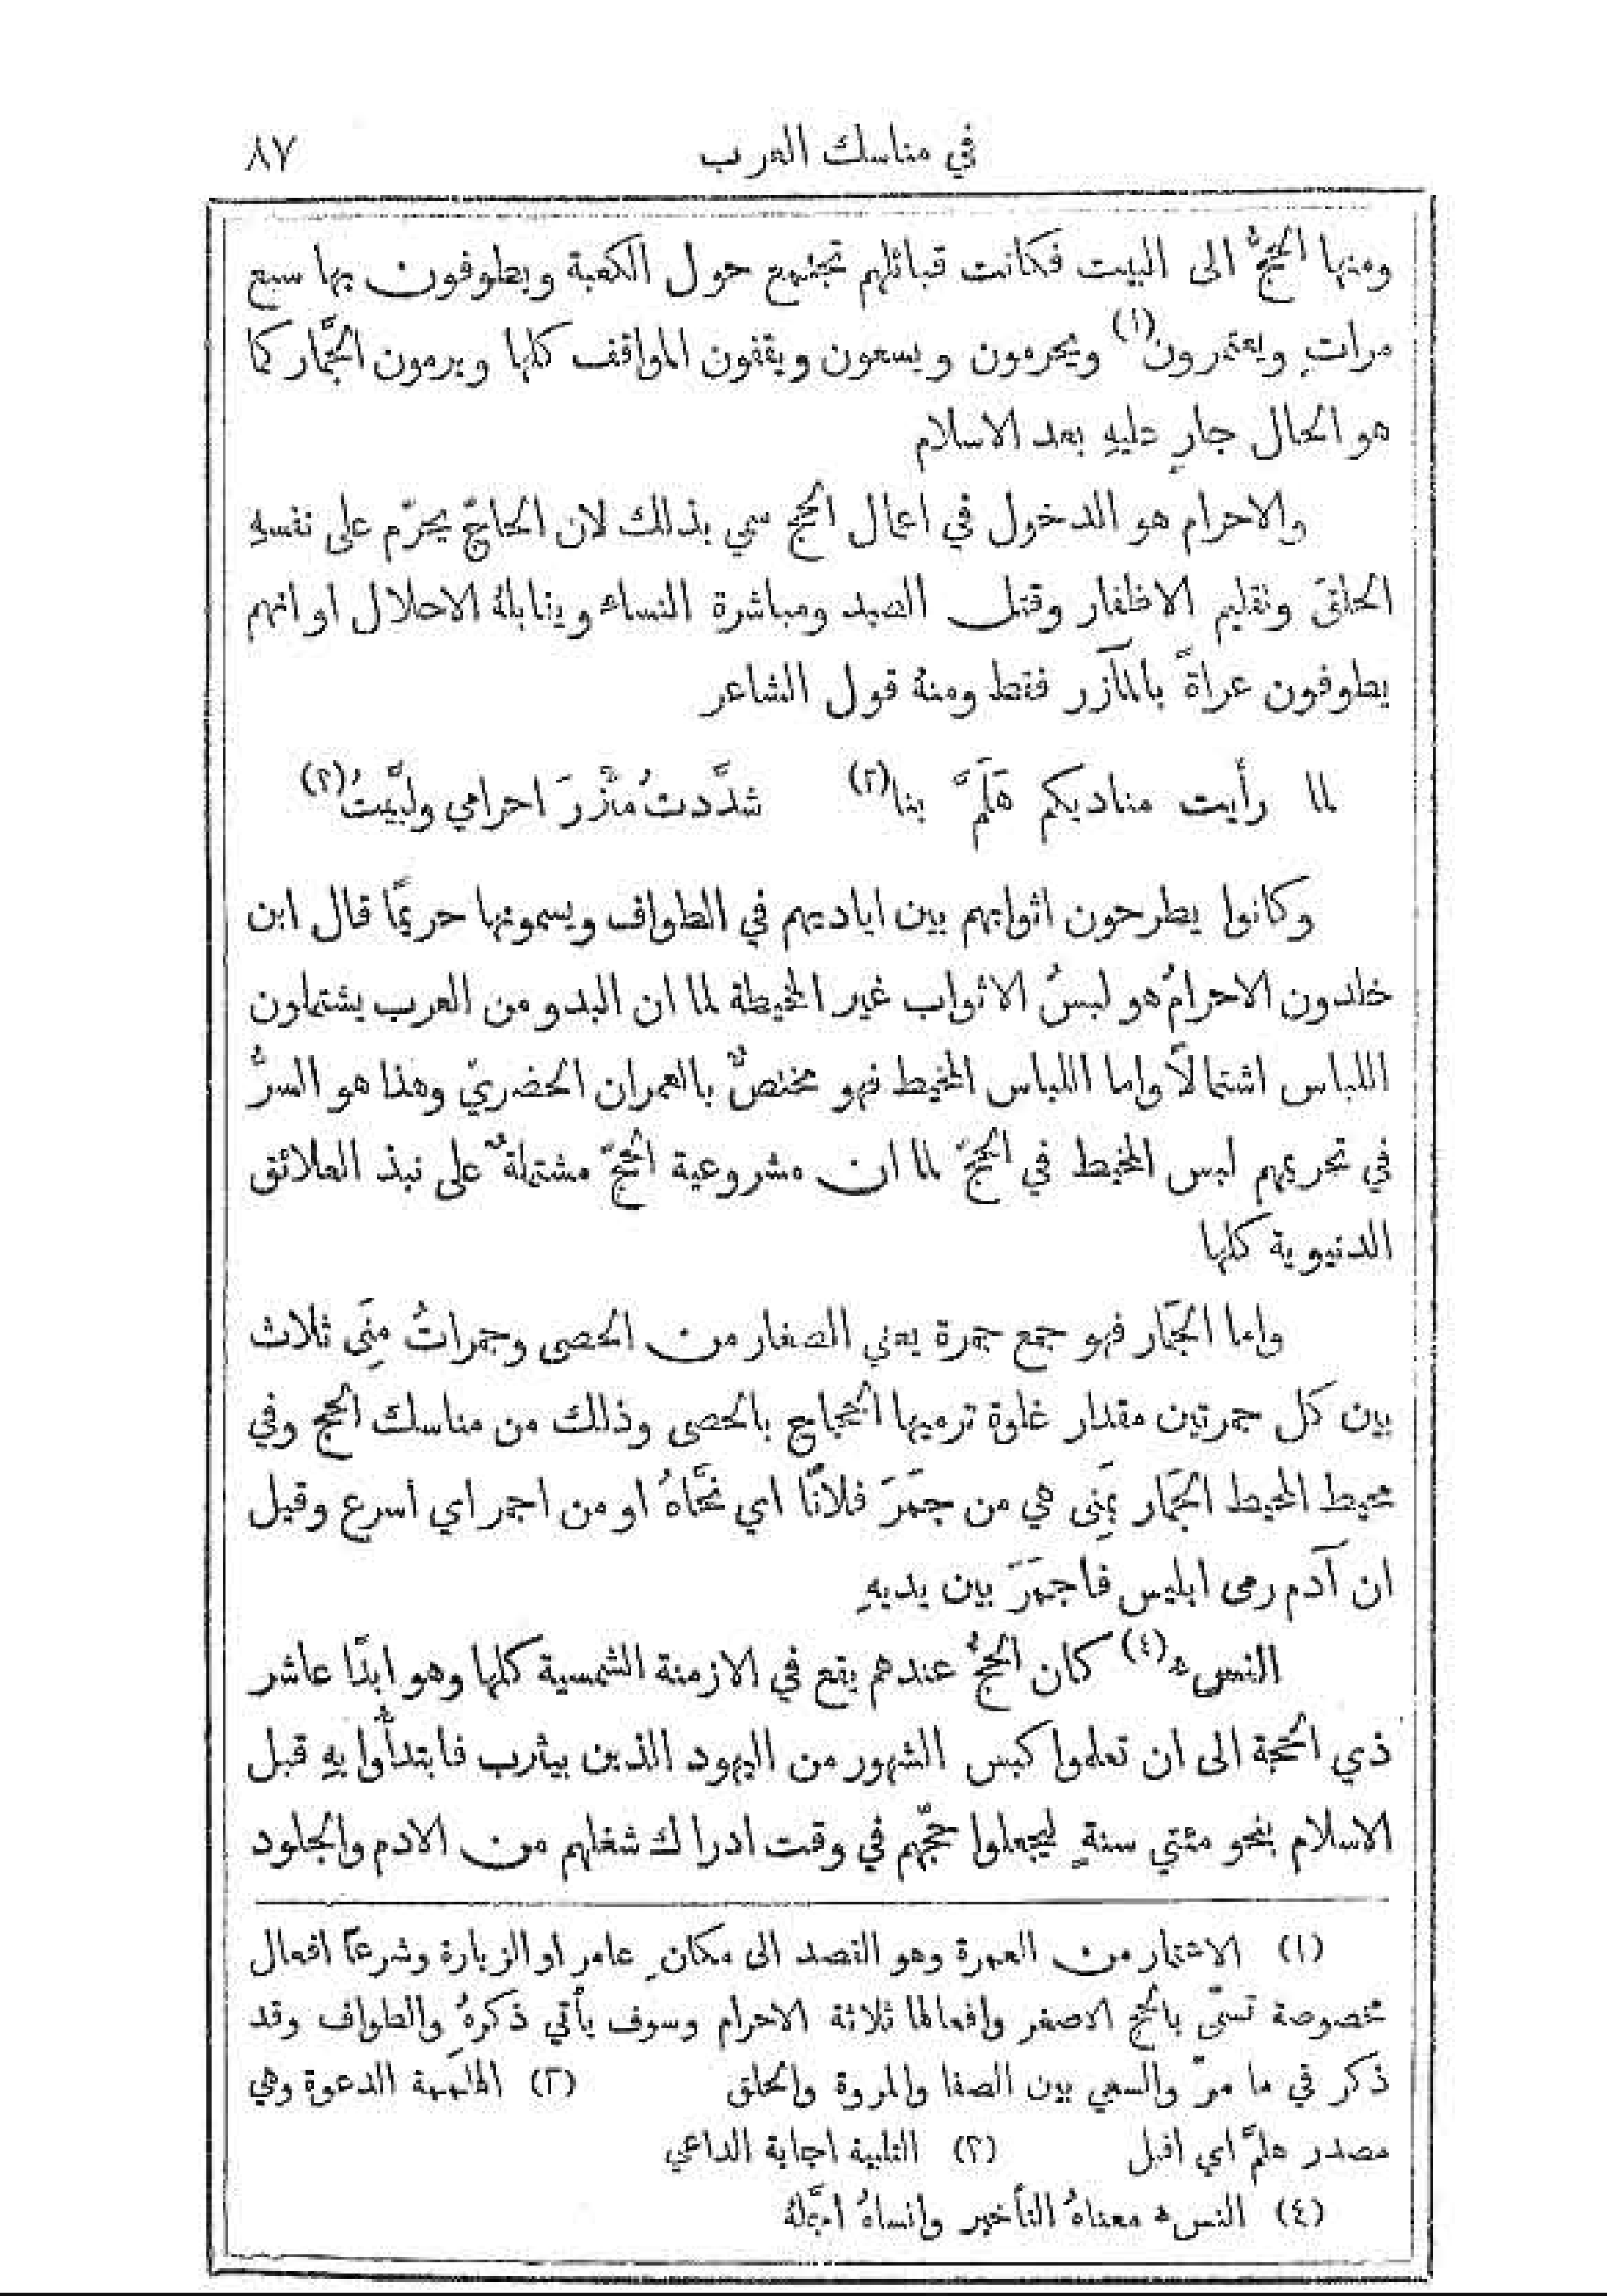 في مناسك العرب
٨٧
ومنها الحجُّ الى البيت فكانت قبائلهم تجتمع حول الكعبة ويطوفون بها سبع
مراتٍ ويعتمرون(١) ويحرمون ويسعون ويقفون المواقف كلها ويرمون الجَّمار كما
هو الحال جارٍ عليهِ بعد الاسلام
والاحرام هو الدخول في اعمال الحج سمي بذلك لان الحاجّ يحرّم على نفسهِ
الحلقَ ونقليم الاظفار وقتل الصيد ومباشرة النساء ويقابلهُ الاحلال او انهم
يطوفون عراةً بالمآزر فقط ومنهُ قول الشاعر
لما رأيت مناديكم هَلَمَّ بنا(٢) شدَّدتُ مئْزرَ احرامي ولبَّيتُ(٣)
وكانوا يطرحون اثوابهم بين اياديهم في الطواف ويسمونها حريمًا قال ابن
خلدون الاحرامُ هو لبسُ الاثواب غير المخيطة لما ان البدو من العرب يشتملون
اللباس اشتمالاً واما اللباس المخيط فهو مختصٌّ بالعمران الحضريّ وهذا هو السرُّ
في تحريمهم لبس المخيط في الحجّ لما ان مشروعية الحجّ مشتملةٌ على نبذ العلائق
الدنيوية كلها
واما الجَمار فهو جمع جمرة يعني الصغار من الحصى وجمراتُ مِنَى ثلاث
بين كل جمرتين مقدار غلوة ترميها الحجاج بالحصى وذلك من مناسك الحج وفي
محيط المحيط الجَمار بمِنَى هي من جمَّرَ فلانًا اي نحَّاهُ او من اجمر اي أسرع وقيل
ان آدم رمى ابليس فاجمَرَ بين يديهِ
النسيء(٤) كان الحجُّ عندهم يقع في الازمنة الشمسية كلها وهو ابدًا عاشر
ذي الحجة الى ان تعلموا كبس الشهور من اليهود الذين بيثرب فابتدأُوا بهِ قبل
الاسلام بنحو مئتي سنةٍ ليجعلوا حجّهم في وقت ادراك شغلهم من الادم والجلود
(١) الاعتمار من العمرة وهو القصد الى مكانٍ عامر او الزيارة وشرعًا افعال
مخصوصة تسمّى بالحج الاصغر وافعالها ثلاثة الاحرام وسوف يأتي ذكرهُ والطواف وقد
ذكر في ما مرّ والسعي بين الصفا والمروة والحلق (٢) الهلممة الدعوة وهي
مصدر هلمَّ اي اقبل (٣) التلبية اجابة الداعي
(٤) النسيء معناهُ التأخير وانساهُ اجَّلهُ